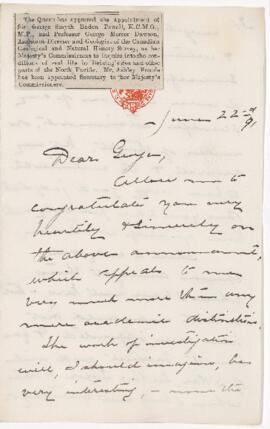 The Queen has approved the Appointment of
Sir George Smyth Baden Powell, K.C.M.G.,
M.P., and Professor George Mercer Dawson,
Assistant Director and Geologist of the Canadian
Geological and Natural History Survey, as her
Majesty's Commissioners to inquire into the con-
ditions of seal life in Behring's Sea and other
parts of the North Pacific. Mr. Ashley Froude
has been appointed Secretary to her Majesty's
Commissioners.
June 22nd
91
Dear George,
Allow me to
congratulate you very
heartily & sincerely on
the above announcement,
which appeals to me
very much more than any
mere academic distinction.
The work of investigation
will, I should imagine, be
very interesting, – more